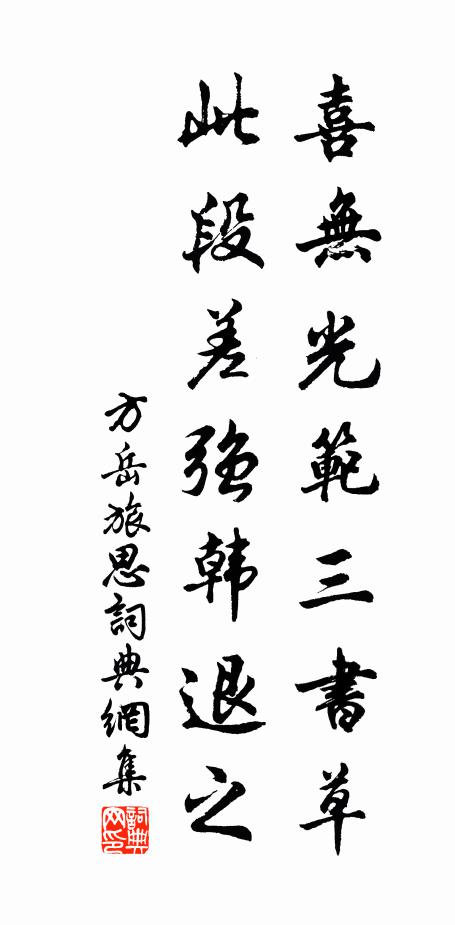 喜無光範三書草
此段差強韩退之
方岳旅思詞典網集
詞典网印